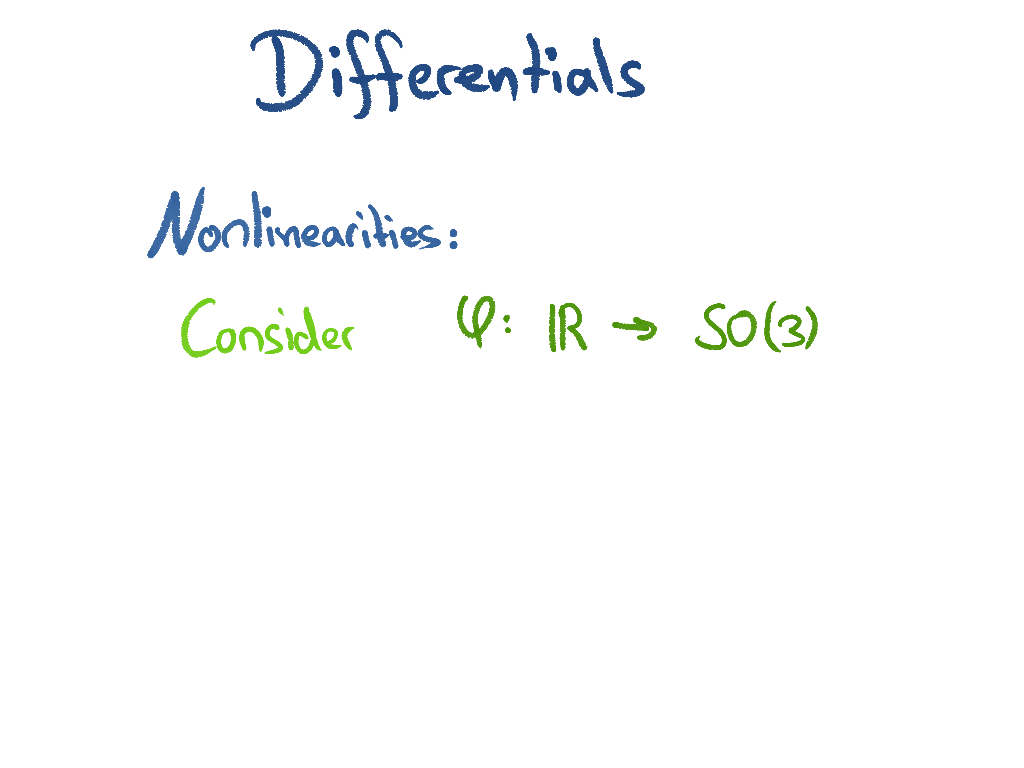 Differentials
Nonlinearities:
Consider φ: ℝ → SO(3)